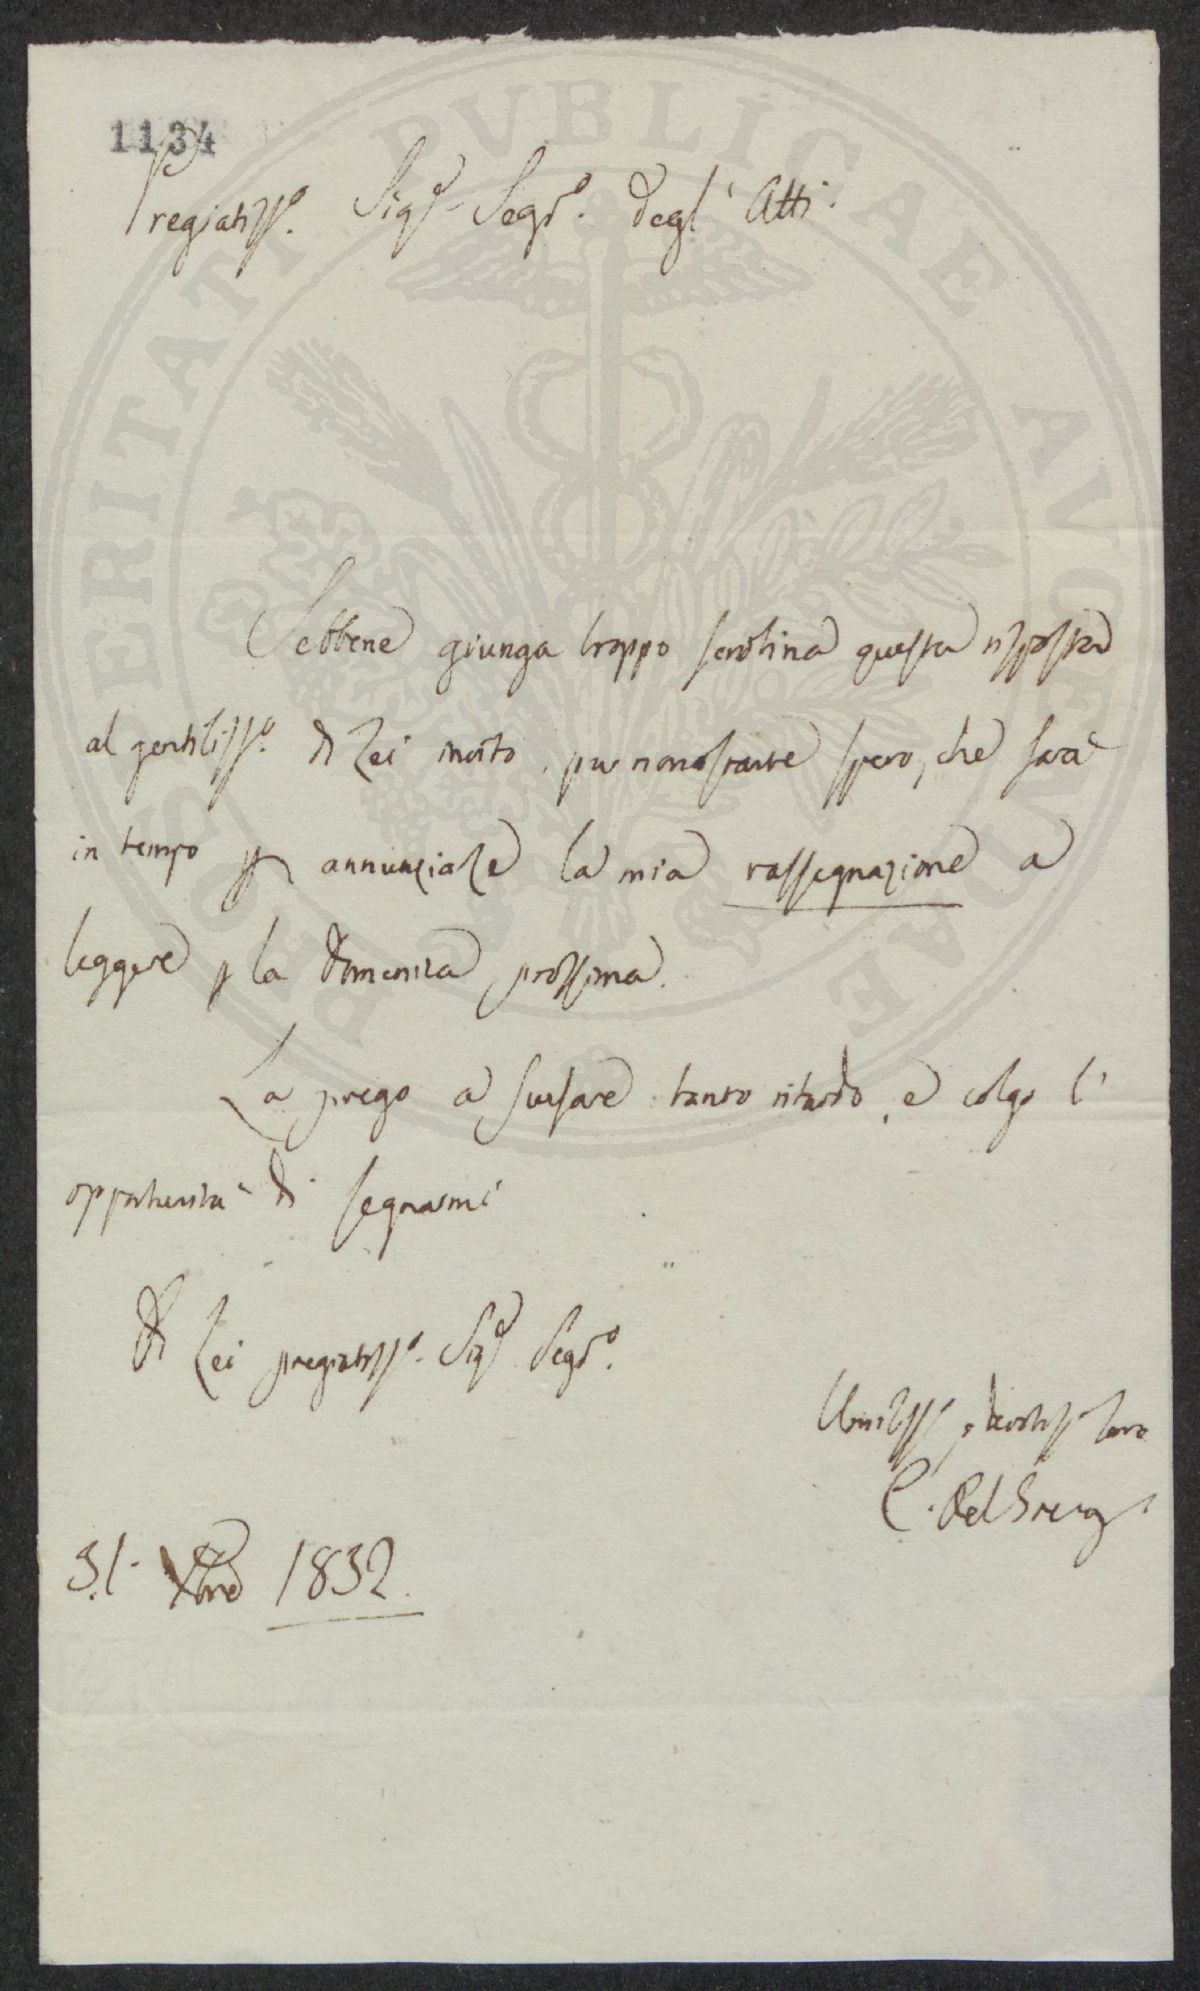 1134
Pregiatiss.º Sig.r Segr.º degl' Atti.
Sebbene giunga troppo serotina questa risposta
al gentiliss.º di Lei invito, pur nonostante spero, che sarà
in tempo p annunziarle la mia rassegnazione a
leggere p la domenica prossima.
La prego a scusare tanto ritardo, e colgo l'
opportunità di segnarmi
Di Lei pregiatiss.º Sig.r Segr.º
Umiliss.º devotiss.º
C. Del
31. Xbre 1832.
PROSPERITATI PVBLICAE AVGENDAE